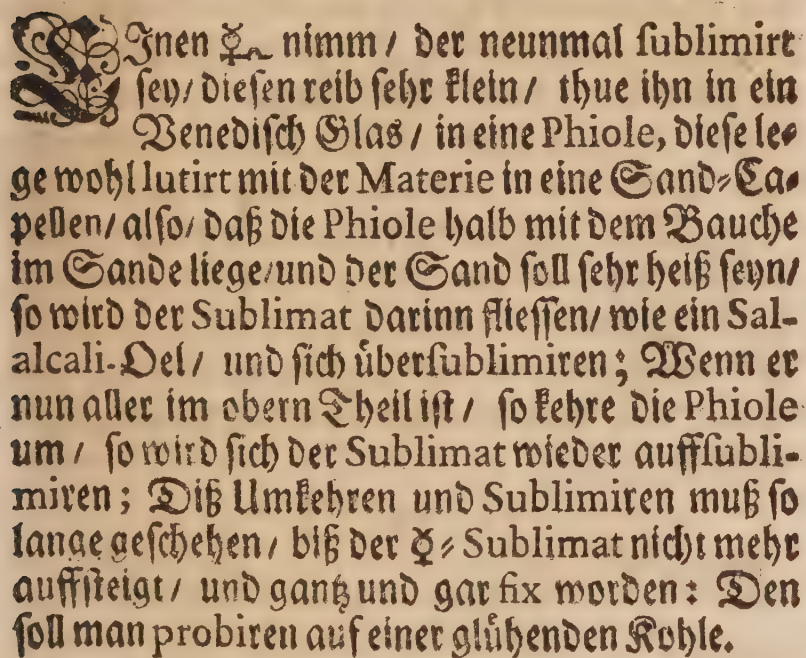 EInen ☿ nimm / der neunmal sublimirt
sey/ diesen reib sehr klein / thue ihn in ein
Venedisch Glas / in eine Phiole, diese le⸗
ge wohl lutirt mit der Materie in eine Sand⸗Ca⸗
pellen/ also/ daß die Phiole halb mit dem Bauche
im Sande liege/ und der Sand soll sehr heiß seyn/
so wird der Sublimat darinn fliessen/ wie ein Sal-
alcali-Oel / und sich übersublimiren; Wenn er
nun aller im obern Theil ist / so kehre die Phiole
um / so wird sich der Sublimat wieder auffsubli-
miren; Diß Umkehren und Sublimiren muß so
lange geschehen / biß der ☿⸗Sublimat nicht mehr
auffsteigt / und gantz und gar fix worden: Den
soll man probiren auf einer glühenden Kohle.